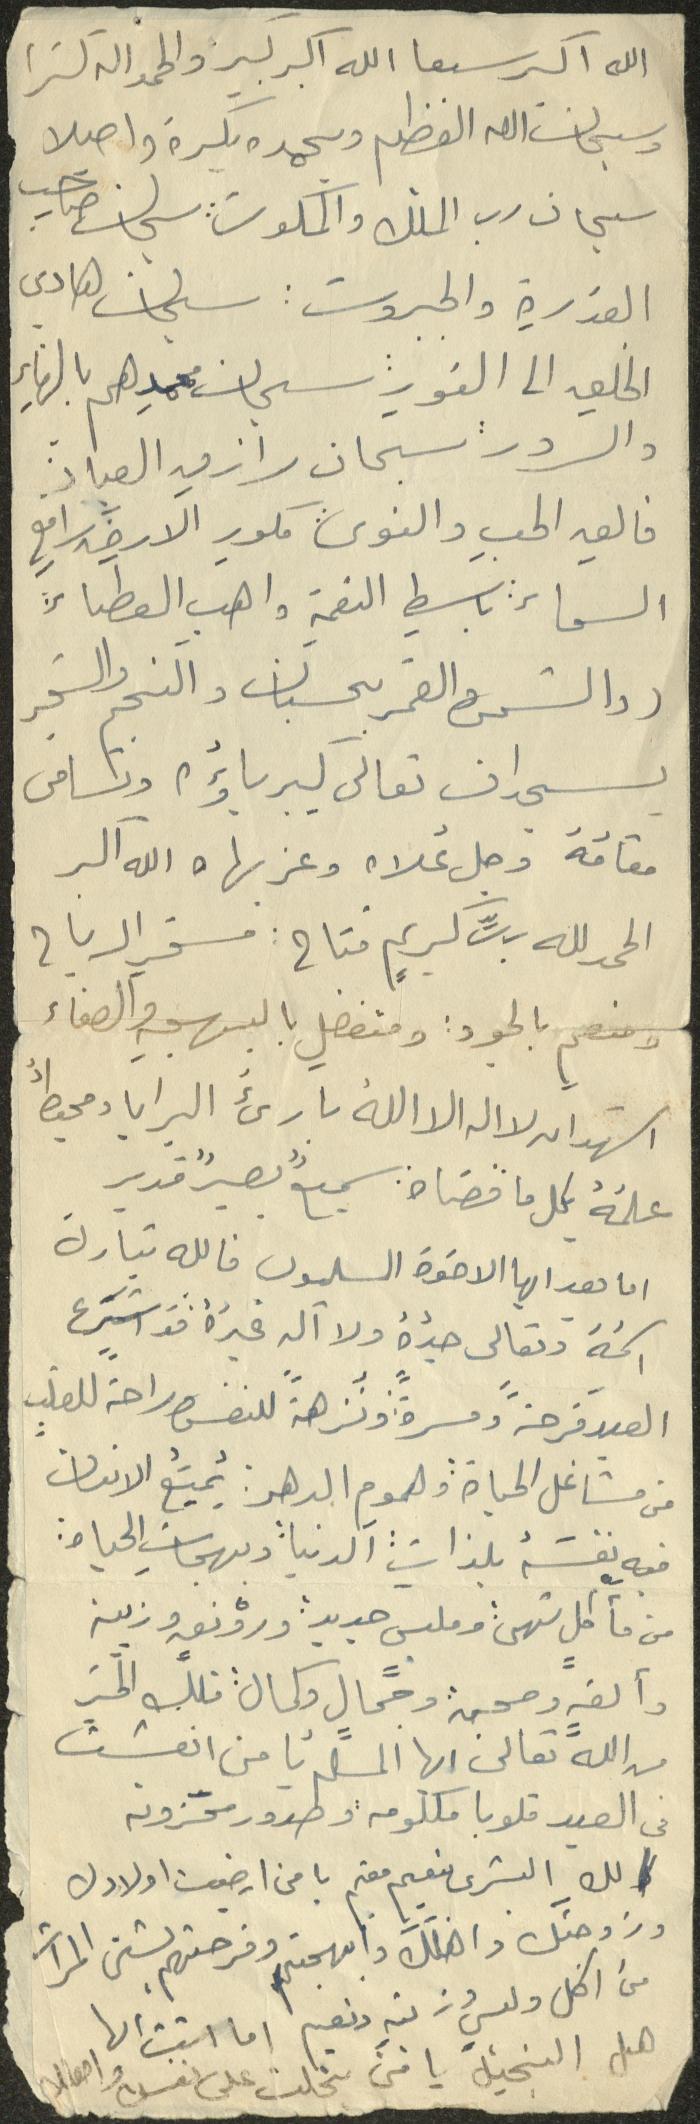 الله اكبر سبعا الله اكبر كبير والحمد الله كثيرا
وسبحان الله العظيم وبحمده بكرة واصيلا
سبحان رب الملك والملكوت: سبحان صاحب
القدرة والجبروت: سبحان هادي
الخلق الى النور: سبحان ممدهم بالهناء
والسرور: سبحان رازق العباد:
فالق الحب والنوى: مكور الارض: رافع
السماء: باسط النعمة واهب العطاء:
والشمس والقمر بحسبان والنجم والشجر
يسجدان تعالى كبرياؤه وتسامى
مقامة وجل علاه وعز بهاه الله اكبر
الحمد لله ربٌ كريمٍ فتاح: مسخر الرياح
ومنعم بالجود: ومتفضل بالبهجة والصفاء
اشهد ان لا اله الا اللهُ بارئُ البرايا ومحيطٌ
علمهُ بكل ما قضاه: سميعٌ بصيرٌ قدير
اما بعد ايها الاخوة المسلمون فالله تبارك
اسمهُ وتعالى جدُهُ ولا آله غيرهُ قد اشرع
العيد فرحةً ومسرةً: ونُزهةً للنفس وراحة للقلب
من مشاغل الحياة: وهموم الدهر: يُمتِعُ الانسان
فيه نفسَهُ بلذات: الدنيا: وبهجات الحياة:
من مأكلٍ شهى: وملبس جديد: ورونق وزينه
وألفةٍ ومحبه: وجمالٍ وكمال: فلك الخير
من الله تعالى ايها المسلم يا من انعشت
فى العيد قلوبا مكلومه: وصدور محزونه
لك البشرى بنعيم مقيم يا من ارضيت اولادك
وزوجتك واهلك وابهجتهم وفرحتهم بشتى المرات
من اكل ولبسٍ وزينهٍ ونعيم اما انت ايها
هل البخيل يا من بخلت على نفسك واهلك